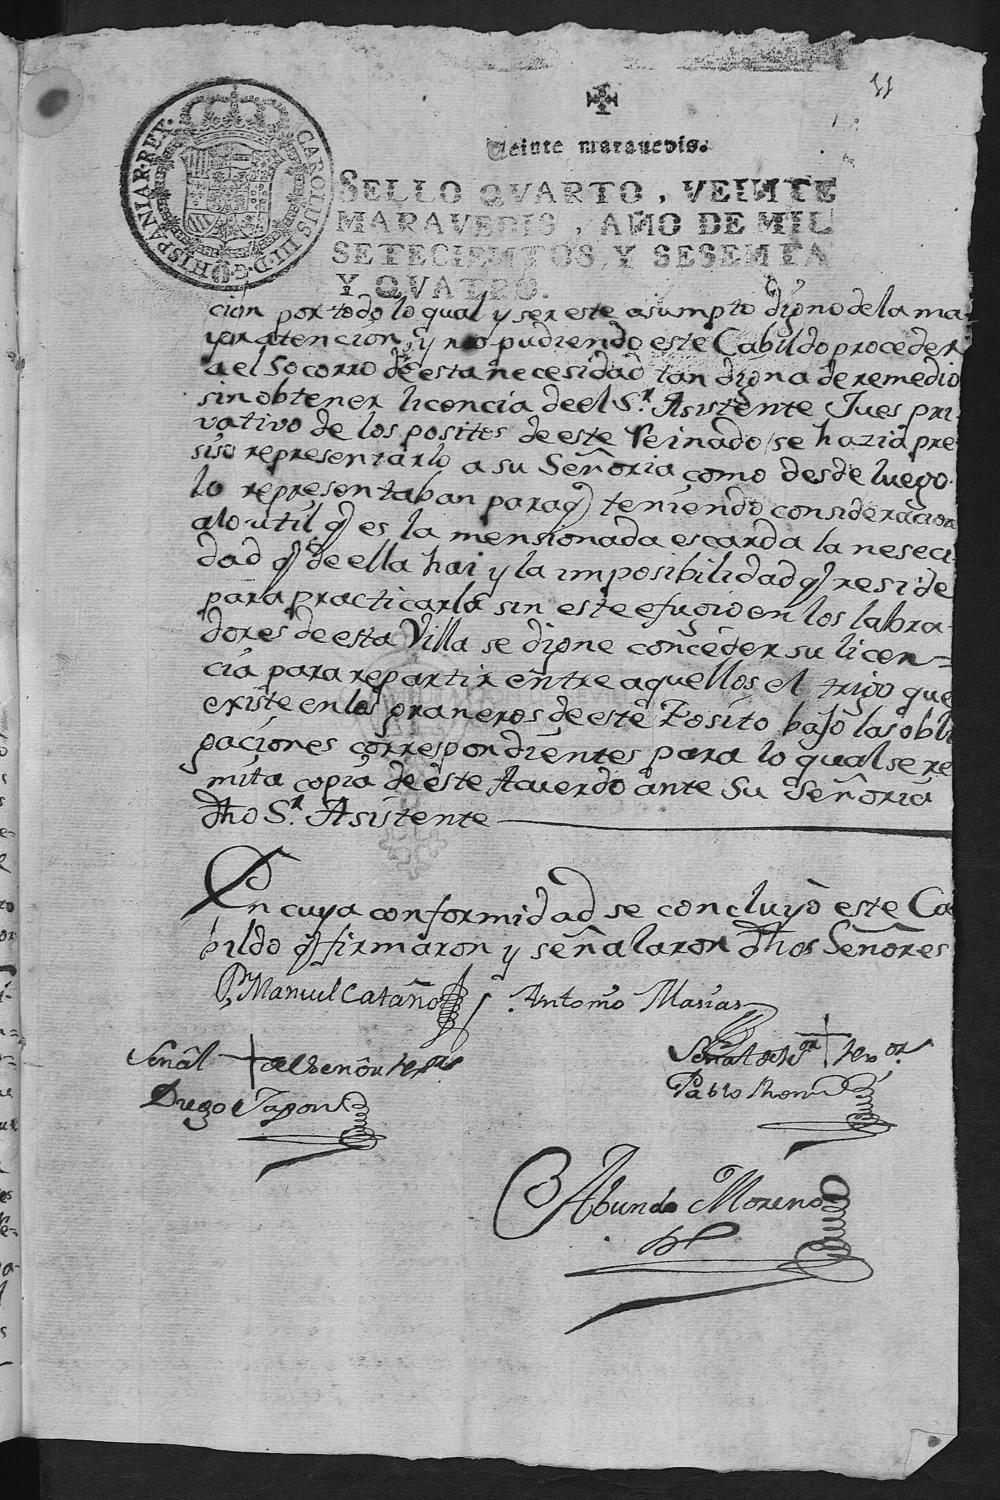 11
Veinte maravedis.
CAROLUS III D G HISPANIAR REX
SELLO QVARTO, VEINTE
MARAVEDIS, AÑO DE MIL
SETECIENTOS, Y SESENTA
Y QVATRO.
cion por todo lo qual y ser este asumpto digno de la ma-
yor atencion y no pudiendo este Cabildo proceder
a el Socorro de esta necesidad tan digna de remedio
sin obtener licencia de el Sr. Asistente Jues pri-
vativo de los positos de este Reinado, se hazia pre-
siso representarlo a su Señoria como desde luego
lo representaban para q teniendo consideracion
a lo util q es la mensionada escarda la neseci-
dad q de ella hai y la imposibilidad q reside
para practicarla sin este efugio en los labra-
dores de esta Villa se digne conceder su licen-
cia para repartir entre aquellos el trigo que
existe en los graneros de este Posito bajo las obli-
gaciones correspondientes para lo qual se re-
mita copia de este Acuerdo ante Su Señoria
dho Sr. Asistente
En cuya conformidad se concluyò este Ca-
bildo q firmaron y señalaron dhos Señores
Manuel Cataño Antonio Masias
Señal + del Señor
Señal de + 
Diego Japon
Pablo
Abundo Moreno